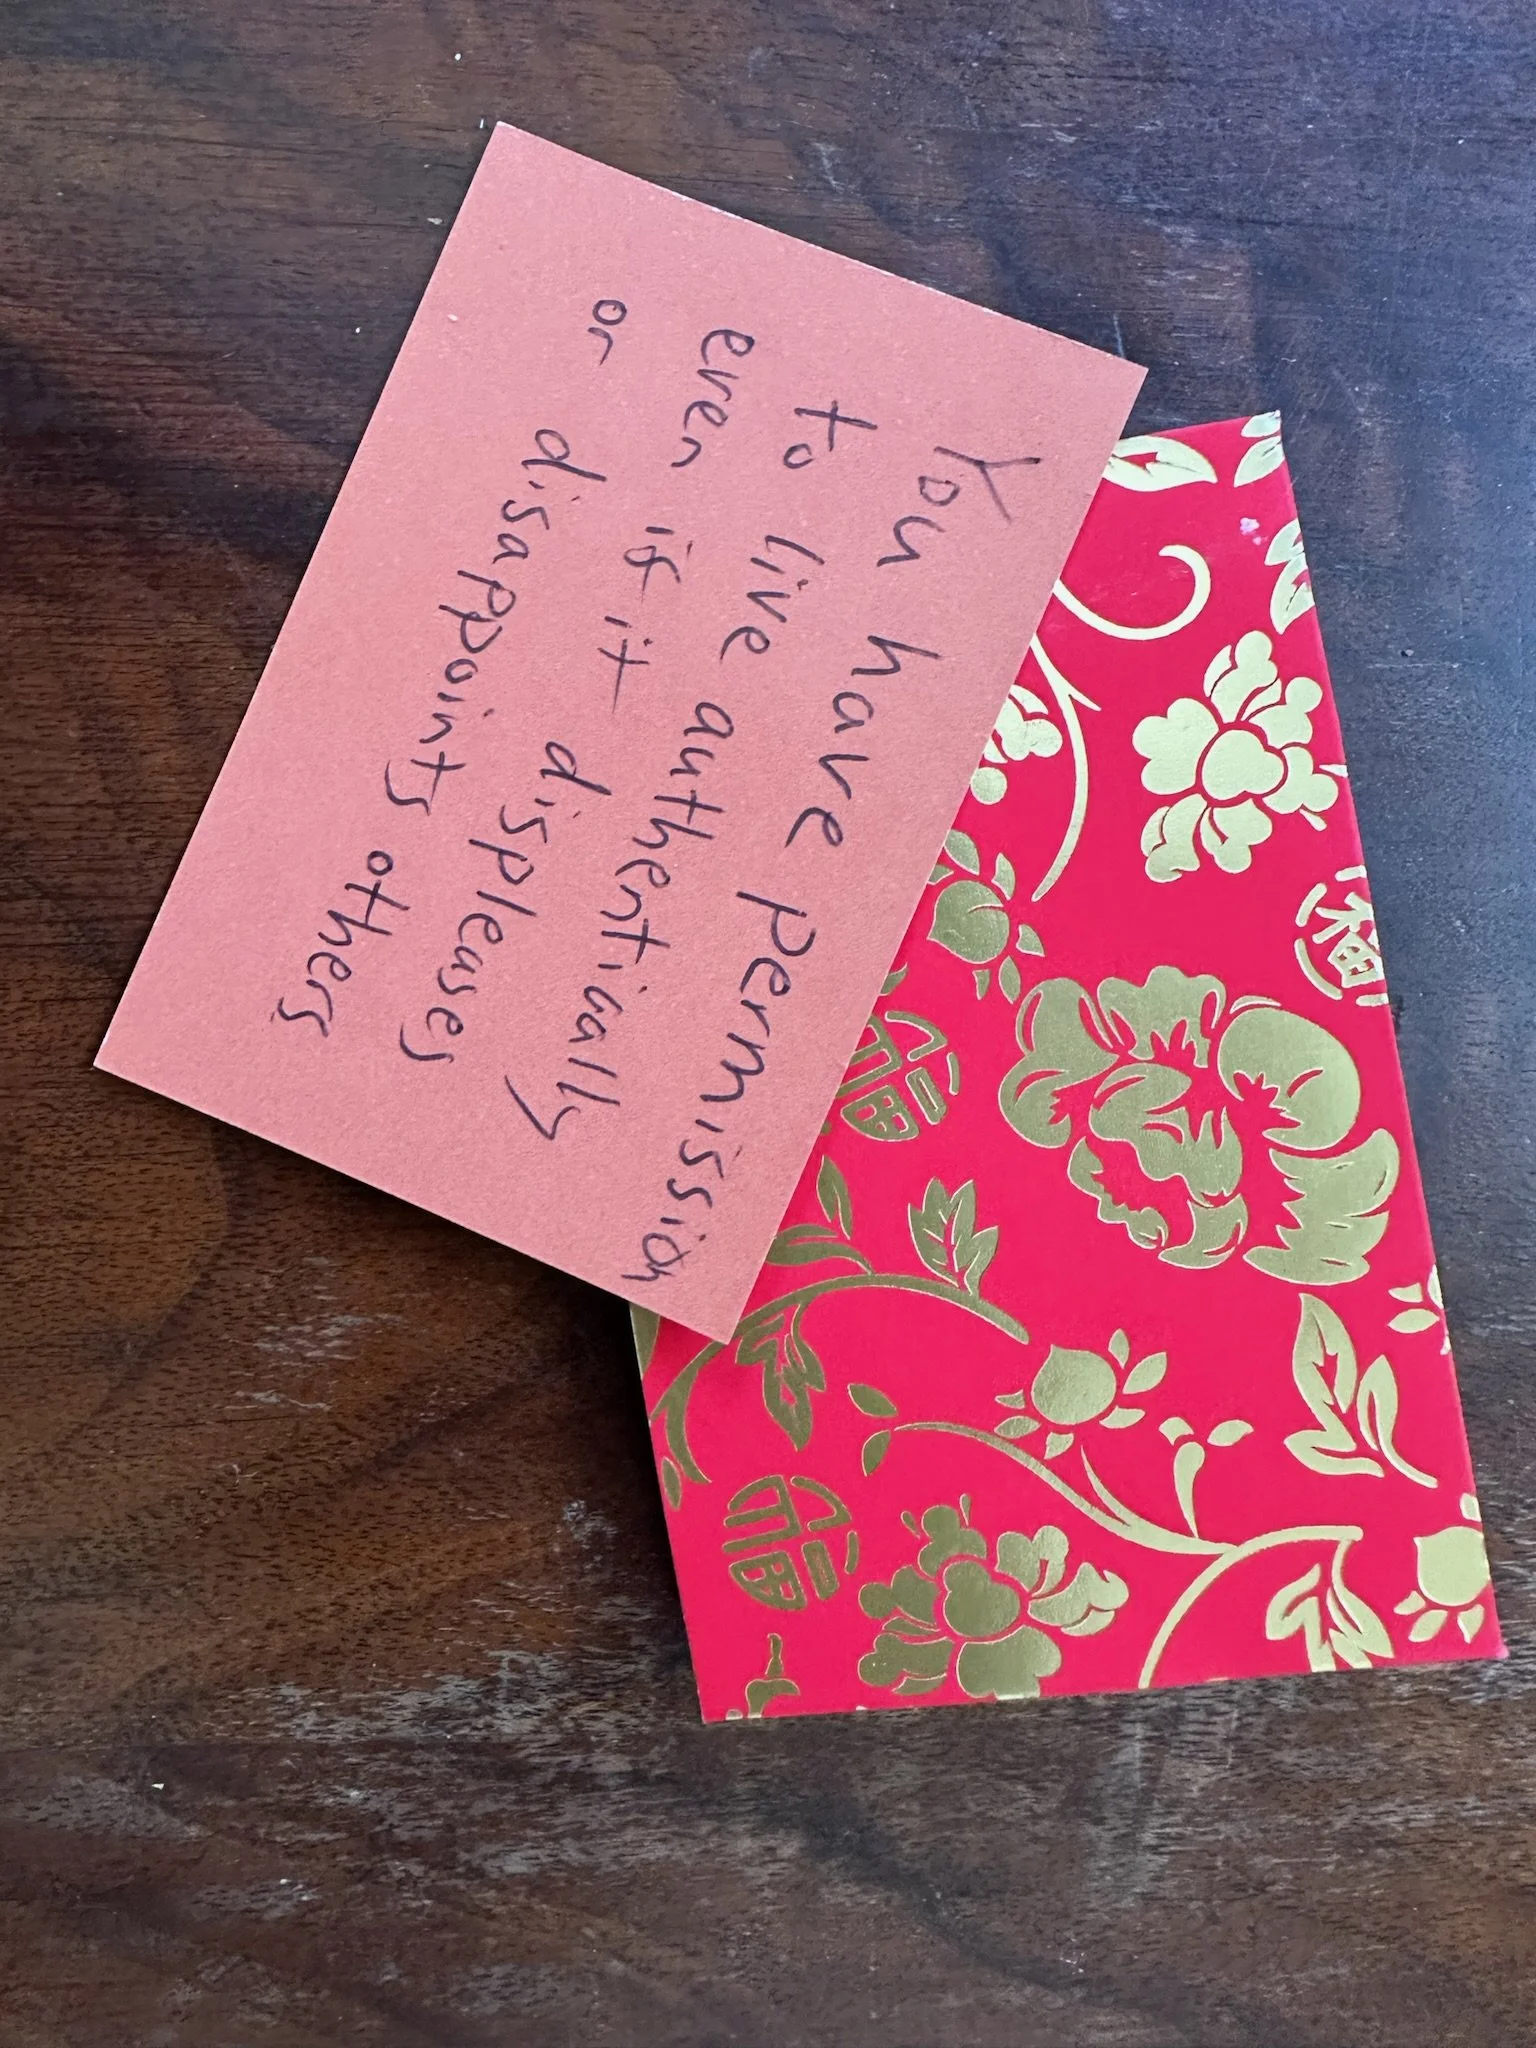 You have permission
to live authentically
even if it displeases
or disappoints others
福
福
福